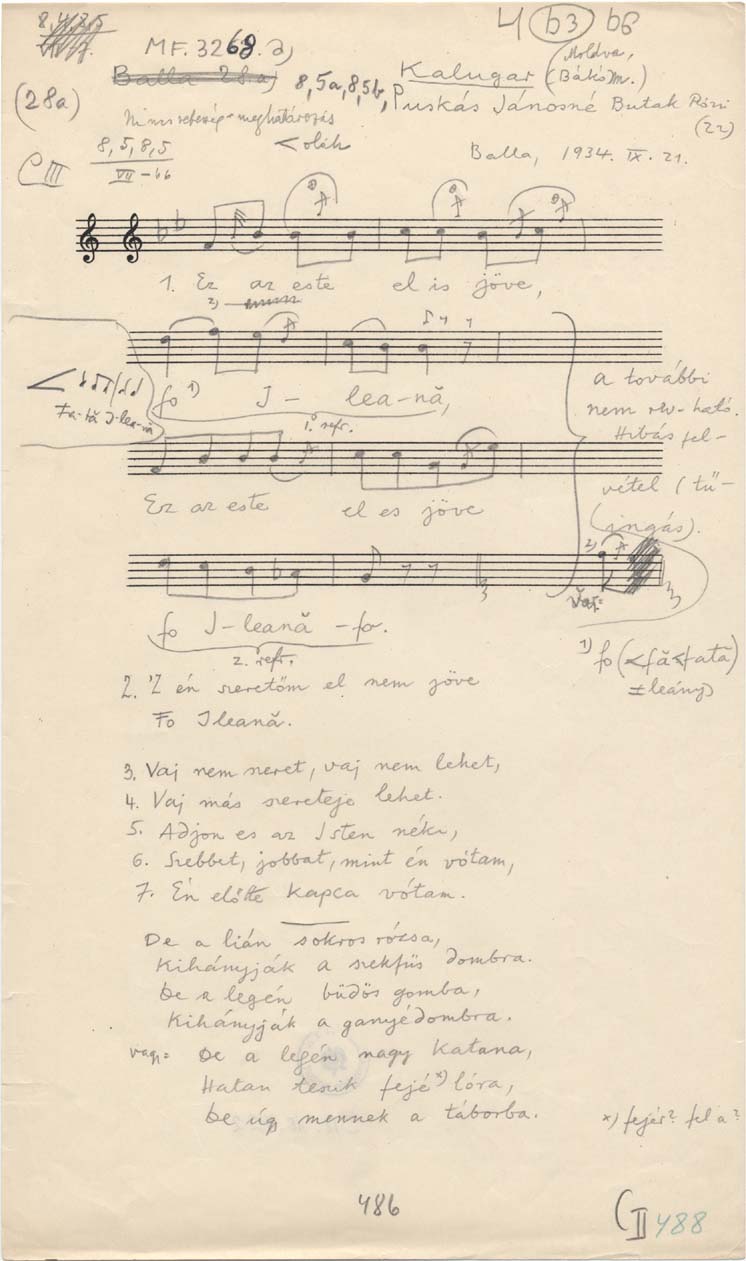 8,4,8,5
4 b3 b6
MF. 3268.a)
Balla 28.a)
8,5a,8,5b,
Kalugar (Moldva, Bákó m.)
(28a)
Puskás Jánosné Butak Rózsi
(22)
Nincs refrénkép-meghatározás
< oláh
8, 5, 8, 5
VII – b6
C III
Balla, 1934. IX. 21.
1. Ez az este el is jöve,
2)
fo 1) I – lea-nă,
1. refr.
<
Fa-tă I-lea-nă
a további
nem rlv-ható.
Hibás fel-
vétel (tű-
ingás).
Ez az este el es jöve
fo I-leană -fo.
2. refr.
2)
Var:
1) fo (<fă<fată)
= leány
2. 'Z én szeretőm el nem jöve
Fo Ileană.
3. Vaj nem szeret, vaj nem lehet,
4. Vaj más szereteje lehet.
5. Adjon es az Isten néki,
6. Szebbet, jobbat, mint én vótam,
7. Én előtte kapca vótam.
De a lián sokros rózsa,
Kihányják a szekfüs dombra.
De a legén büdös gomba,
Kihányják a ganyédombra.
vagy: De a legén nagy katana,
Hatan teszik fejé x) lóra,
De úgy mennek a táborba.
x) fejér? fel a?
486
C II 488